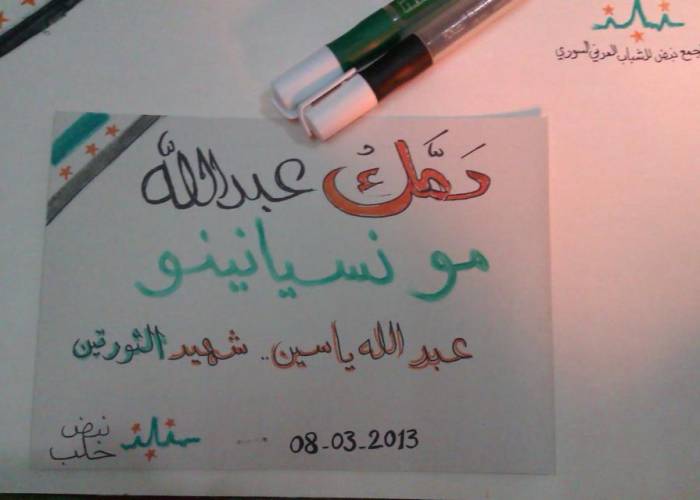 تجمع نبض للشباب المدني السوري
دمّك عبدالله
مو نسيانينو
عبد الله ياسين.. شهيد الثورتين
نبض
حلب
08-03-2013